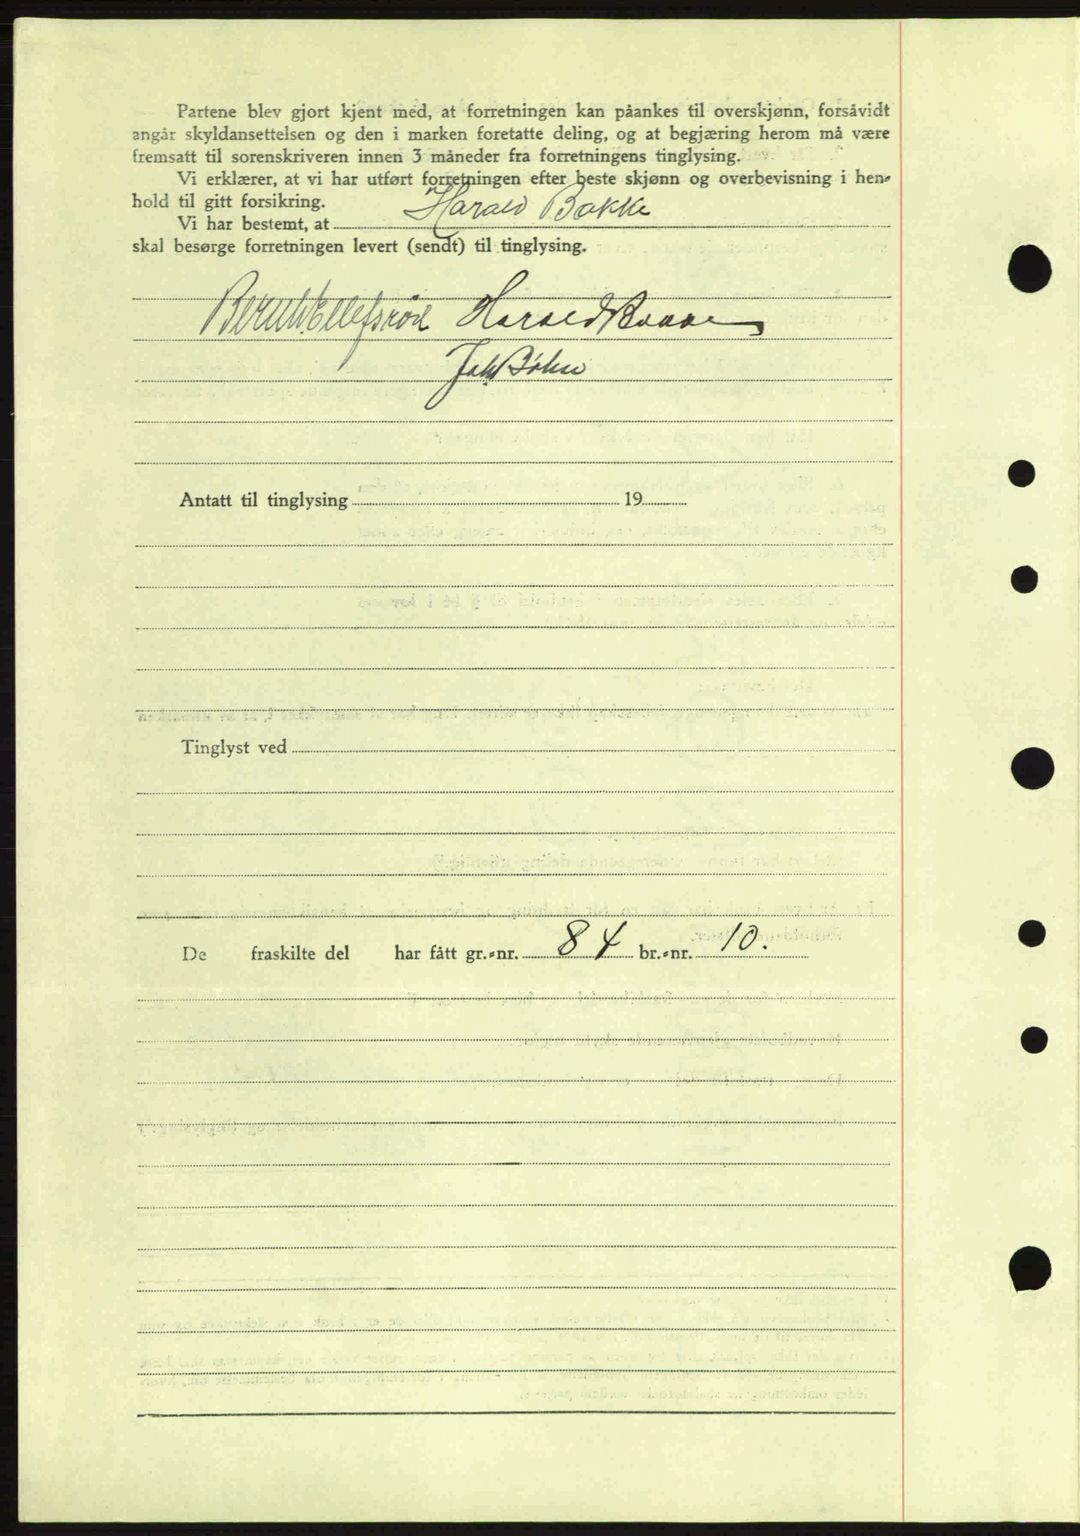 Partene blev gjort kjent med, at forretningen kan påankes til overskjønn, forsåvidt
angår skyldansettelsen og den i marken foretatte deling, og at begjæring herom må være
fremsatt til sorenskriveren innen 3 måneder fra forretningens tinglysing.
Vi erklærer, at vi har utført forretningen efter beste skjønn og overbevisning i hen-
hold til gitt forsikring.
Vi har bestemt, at Harald Bakke
skal besørge forretningen levert (sendt) til tinglysing.
Harald Bakke
Antatt til tinglysing 19
Tinglyst ved
De fraskilte del har fått gr.-nr. 84 br.-nr. 10.